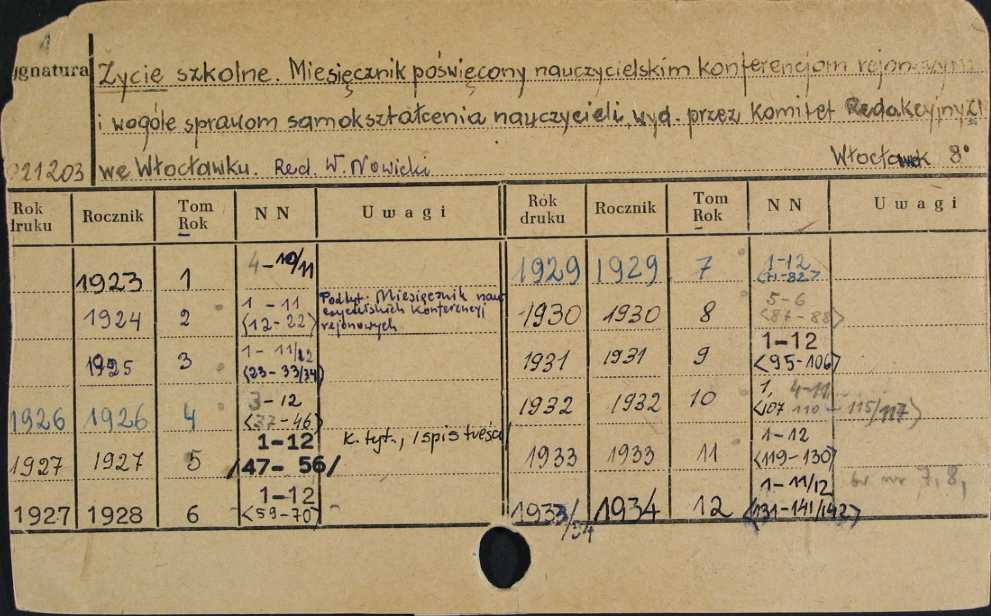 Życie szkolne. Miesięcznik poświęcony nauczycielskim konferencjom rejonowym
i wogóle sprawom samokształcenia nauczycieli, wyd. przez Komitet Redakcyjny
we Włocławku. Red. W. Nowicki Włocławek 8°
021203
Rok druku Rocznik Tom Rok NN Uwagi Rok druku Rocznik Tom Rok NN Uwagi
1923 1 4-10/11
1924 2 1-11 <12-22> Podtyt. Miesięcznik nauczycielskich konferencyj rejonowych
1925 3 1-11/12 <23-33/34>
1926 1926 4 3-12 <37-46>
1927 1927 5 1-12 /47-56/ K. tyt., /spis treści/
1927 1928 6 1-12 <59-70>
1929 1929 7 1-12 <71-82>
1930 1930 8 5-6 <87-88>
1931 1931 9 1-12 <95-106>
1932 1932 10 1, 4-11 <107 110-115/117>
1933 1933 11 1-12 <119-130>
1933/34 1934 12 1-11/12 <131-141/142> br nr 7, 8,